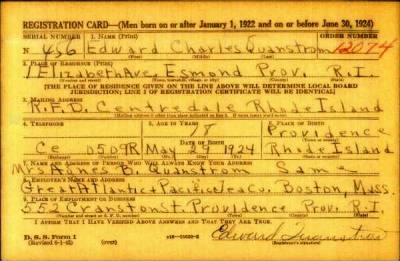 REGISTRATION CARD—(Men born on or after January 1, 1922 and on or before June 30, 1924)
SERIAL NUMBER 1. NAME (Print) ORDER NUMBER
N 456 Edward Charles Quanstrom 12074
(First) (Middle) (Last)
2. PLACE OF RESIDENCE (Print)
1 Elizabeth Ave Esmond Prov. R.I.
(Number and street) (Town, township, village, or city) (County) (State)
[THE PLACE OF RESIDENCE GIVEN ON THE LINE ABOVE WILL DETERMINE LOCAL BOARD
JURISDICTION; LINE 2 OF REGISTRATION CERTIFICATE WILL BE IDENTICAL]
3. MAILING ADDRESS
R.F.D. Centredale Rhode Island
[Mailing address if other than place indicated on line 2. If same insert word same]
4. TELEPHONE 5. AGE IN YEARS 6. PLACE OF BIRTH
18 Providence
DATE OF BIRTH
Ce 0509R May 29 1924 Rhode Island
(Exchange) (Number) (Mo.) (Day) (Yr.) (State or country)
7. NAME AND ADDRESS OF PERSON WHO WILL ALWAYS KNOW YOUR ADDRESS
Mrs Agnes B. Quanstrom Same
8. EMPLOYER'S NAME AND ADDRESS
Great Atlantic & Pacific Tea Co. Boston, Mass.
9. PLACE OF EMPLOYMENT OR BUSINESS
552 Cranston St. Providence Prov. R.I.
(Number and street or R. F. D. number) (Town) (County) (State)
I AFFIRM THAT I HAVE VERIFIED ABOVE ANSWERS AND THAT THEY ARE TRUE.
D. S. S. Form 1
(Revised 6-1-42) (over)
Edward Quanstrom
(Registrant's signature)